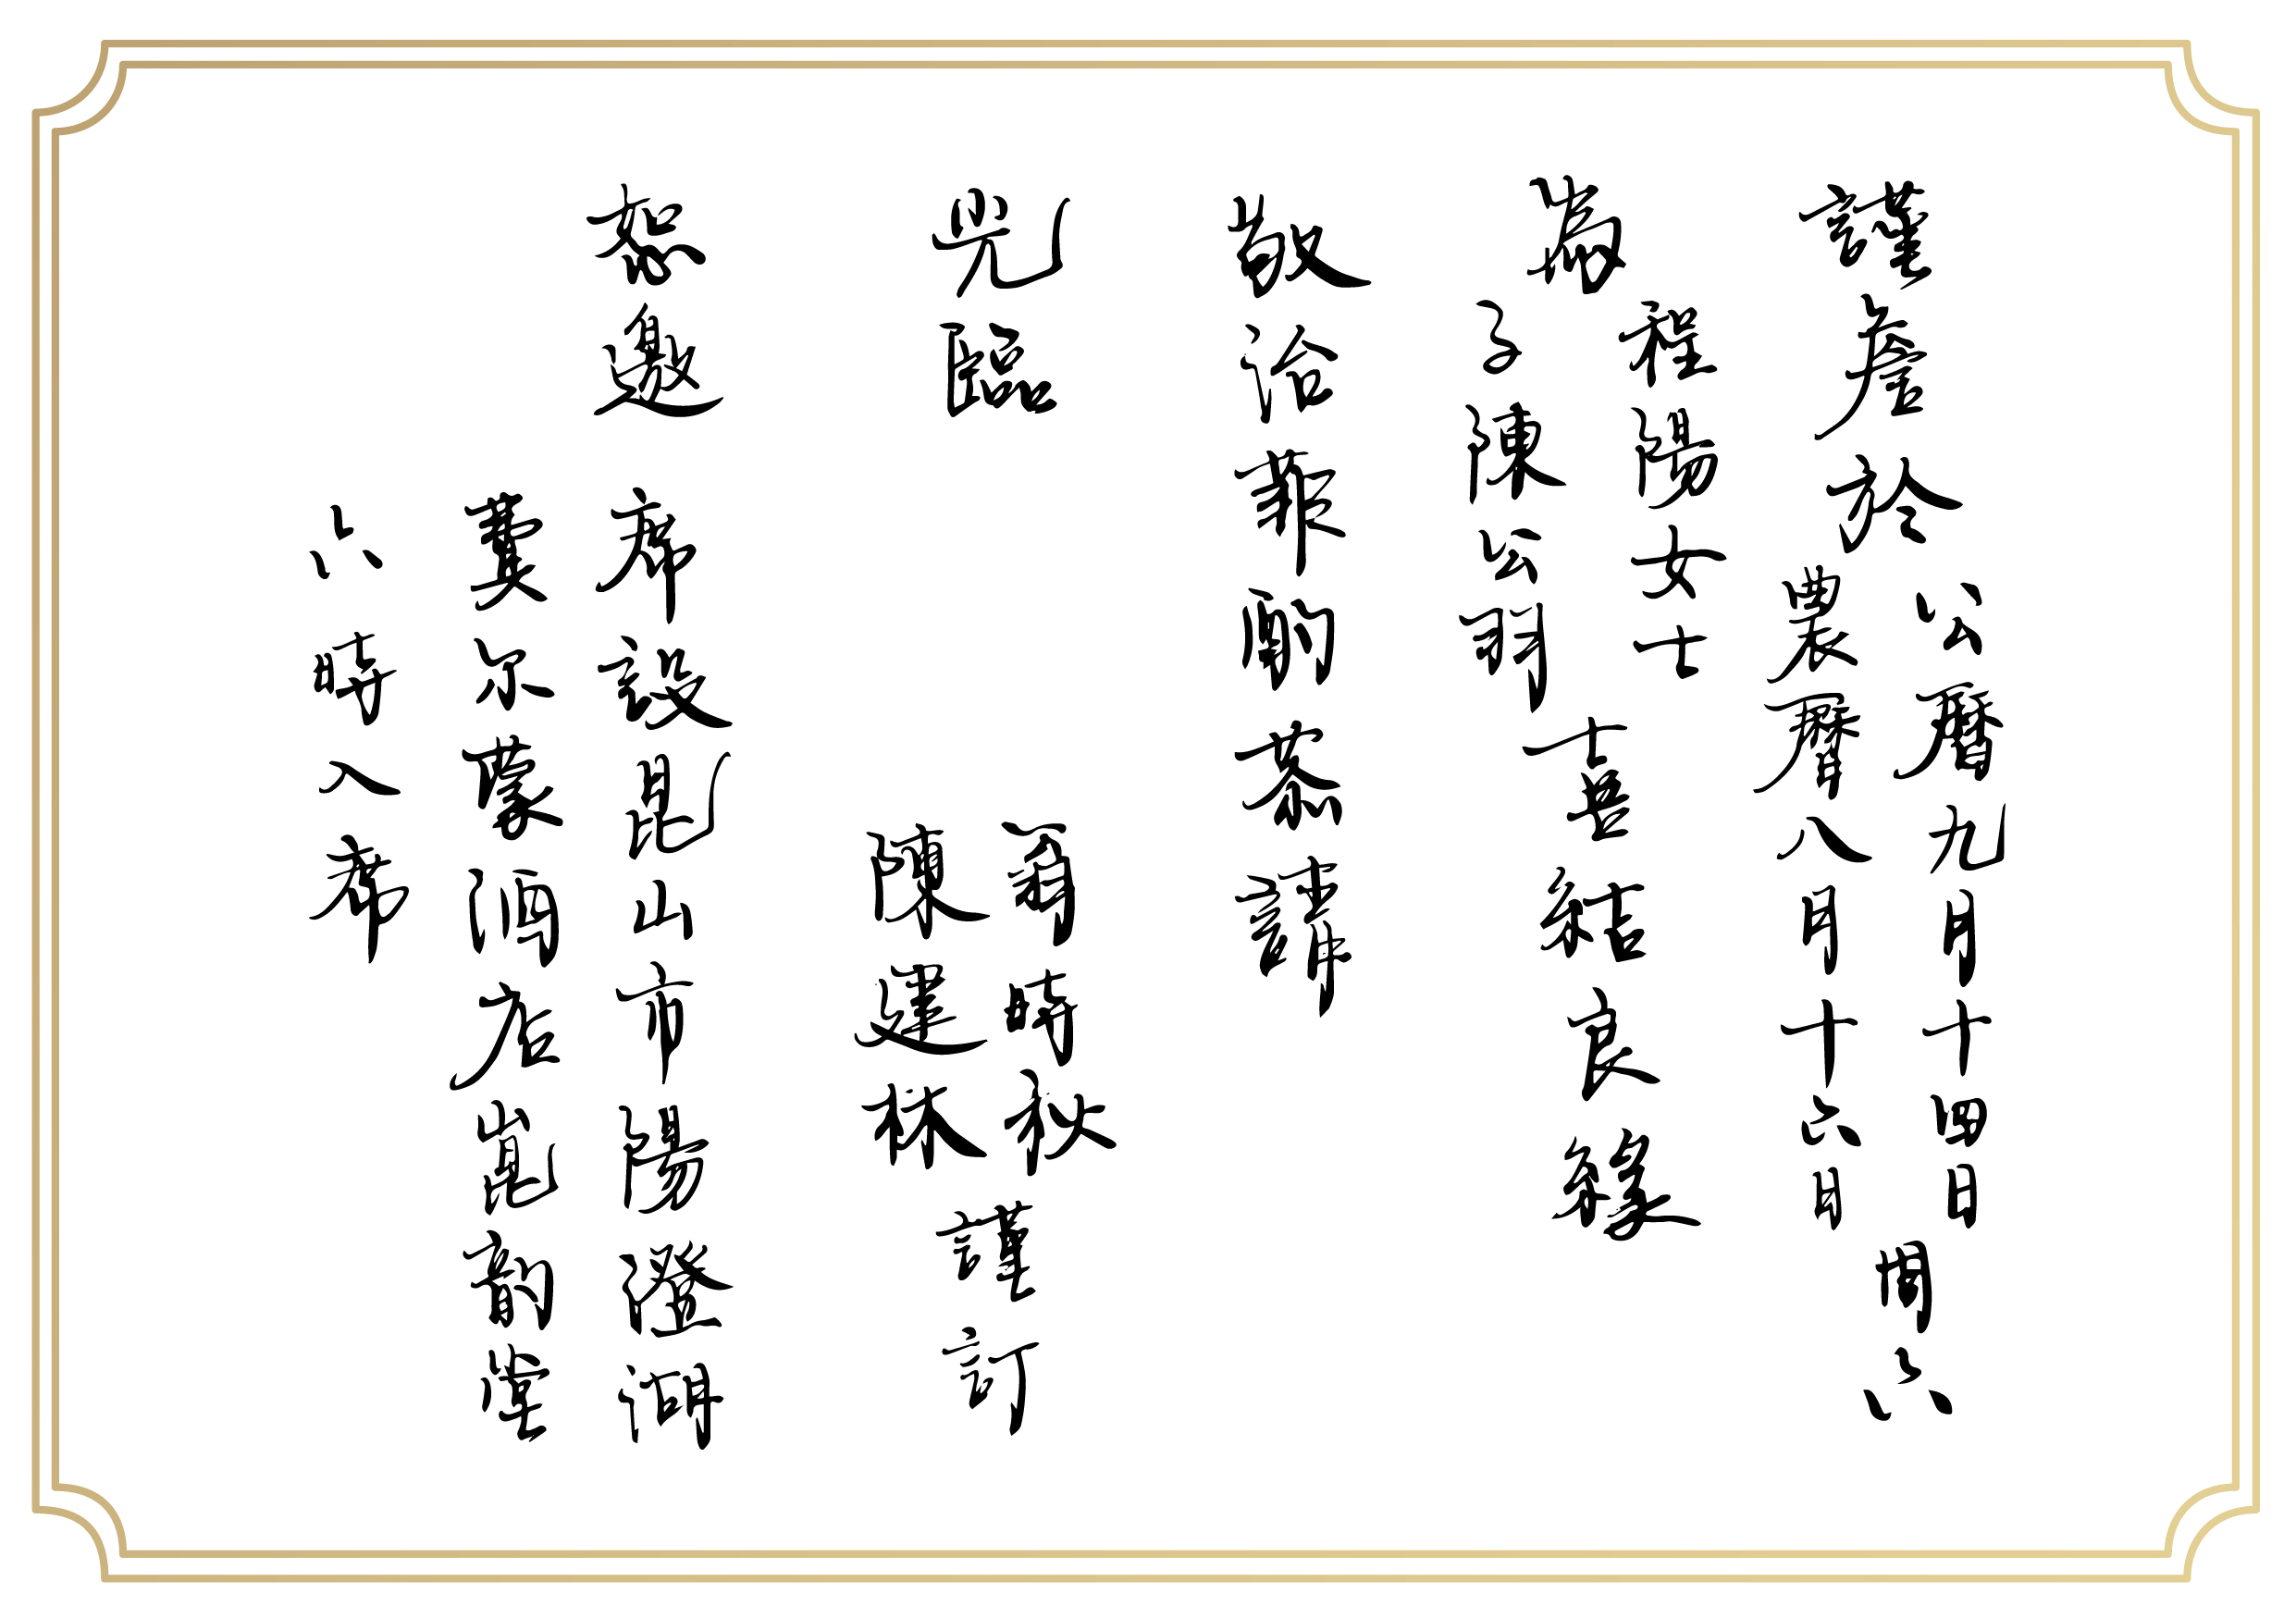 謹詹於
公曆九月十四日
農曆八月十六日
周六
為
程陽女士
子陳公羽
喜結良緣
敬治菲酌恭請
光臨
聶時秋
陳建林
謹訂
恕邀
席設昆山市陽澄湖
費尔蒙酒店崑韵堂
六時入席